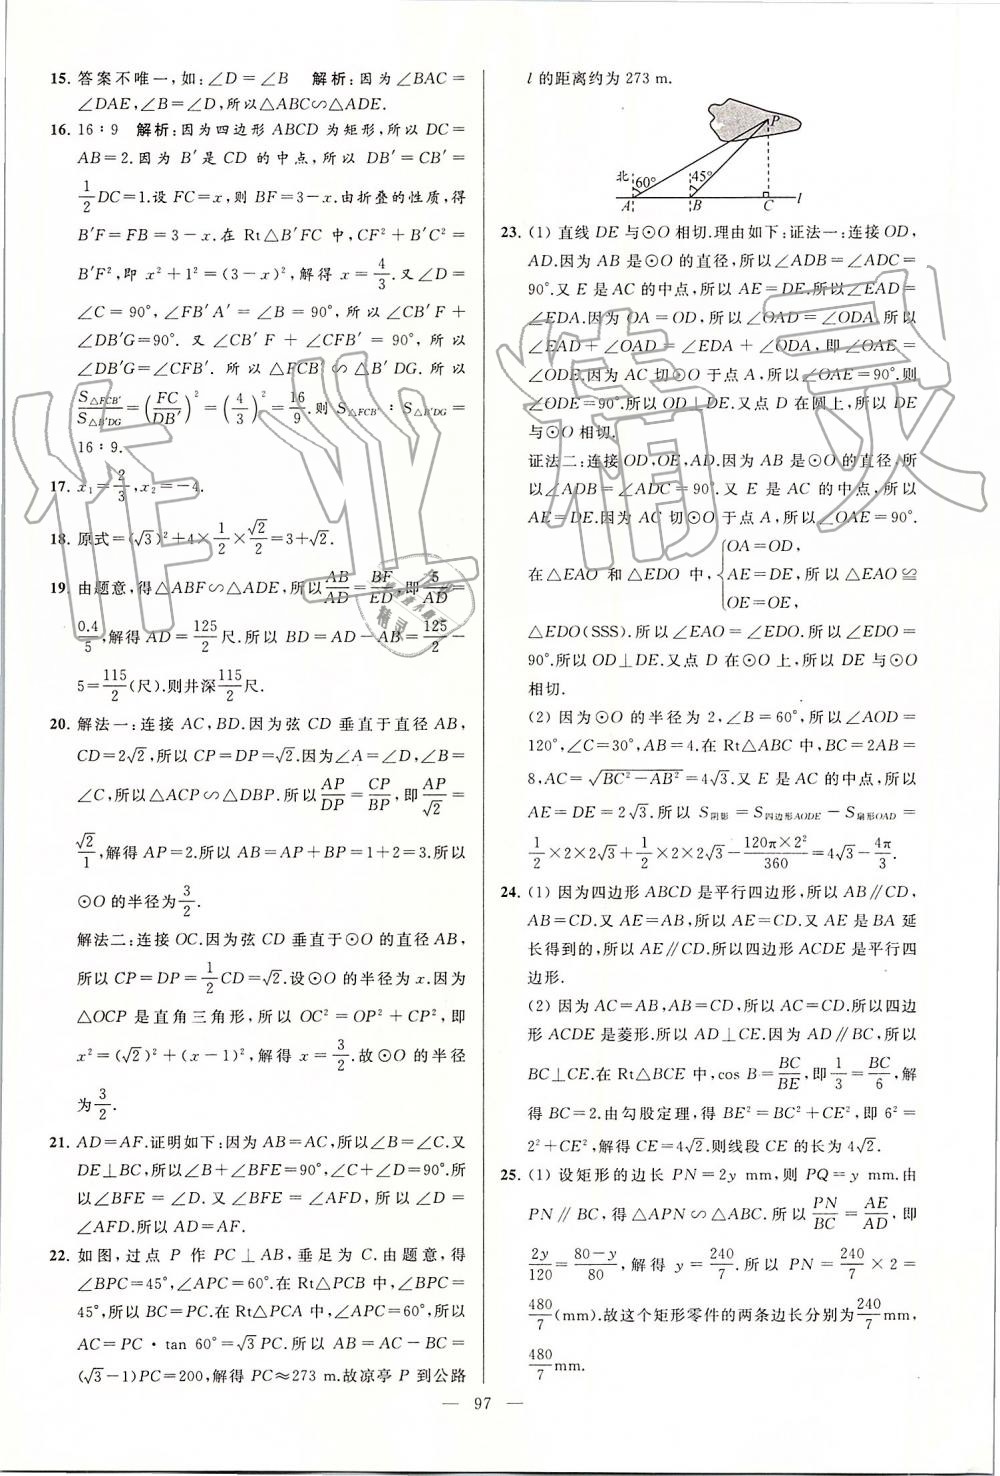 15. 答案不唯一,如:∠D=∠B 解析:因为∠BAC=
∠DAE,∠B=∠D,所以△ABC∽△ADE.
16. 16∶9 解析:因为四边形 ABCD 为矩形,所以 DC=
AB=2.因为 B′是 CD 的中点,所以 DB′=CB′=
1/2 DC=1.设 FC=x,则 BF=3-x.由折叠的性质,得
B′F=FB=3-x.在 Rt△B′FC 中,CF²+B′C²=
B′F²,即 x²+1²=(3-x)²,解得 x=4/3.又∠D=
∠C=90°,∠FB′A′=∠B=90°,所以∠CB′F+
∠DB′G=90°.又∠CB′F+∠CFB′=90°,所以
∠DB′G=∠CFB′.所以△FCB′∽△B′DG.所以
S△FCB′/S△B′DG=(FC/DB′)²=(4/3)²=16/9.则 S△FCB′∶S△B′DG=
16∶9.
17. x₁=2/3,x₂=-4.
18. 原式=(√3)²+4×1/2×√2/2=3+√2.
19. 由题意,得△ABF∽△ADE,所以AB/AD=BF/ED,即5/AD=
0.4/5,解得 AD=125/2尺.所以 BD=AD-AB=125/2-
5=115/2(尺).则井深115/2尺.
20. 解法一:连接 AC,BD.因为弦 CD 垂直于直径 AB,
CD=2√2,所以 CP=DP=√2.因为∠A=∠D,∠B=
∠C,所以△ACP∽△DBP.所以AP/DP=CP/BP,即AP/√2=
√2/1,解得 AP=2.所以 AB=AP+BP=1+2=3.所以
⊙O 的半径为3/2.
解法二:连接 OC.因为弦 CD 垂直于⊙O 的直径 AB,
所以 CP=DP=1/2CD=√2.设⊙O 的半径为 x.因为
△OCP 是直角三角形,所以 OC²=OP²+CP²,即
x²=(√2)²+(x-1)²,解得 x=3/2.故⊙O 的半径
为3/2.
21. AD=AF.证明如下:因为 AB=AC,所以∠B=∠C.又
DE⊥BC,所以∠B+∠BFE=90°,∠C+∠D=90°.所
以∠BFE=∠D.又∠BFE=∠AFD,所以∠D=
∠AFD.所以 AD=AF.
22. 如图,过点 P 作 PC⊥AB,垂足为 C.由题意,得
∠BPC=45°,∠APC=60°.在 Rt△PCB 中,∠BPC=
45°,所以 BC=PC.在 Rt△PCA 中,∠APC=60°,所以
AC=PC·tan 60°=√3PC.所以 AB=AC-BC=
(√3-1)PC=200,解得 PC≈273 m.故凉亭 P 到公路
l 的距离约为 273 m.
P
北 60° 45°
A B C l
23. (1) 直线 DE 与⊙O 相切.理由如下:证法一:连接 OD,
AD.因为 AB 是⊙O 的直径,所以∠ADB=∠ADC=
90°.又 E 是 AC 的中点,所以 AE=DE.所以∠EAD=
∠EDA.因为 OA=OD,所以∠OAD=∠ODA.所以
∠EAD+∠OAD=∠EDA+∠ODA,即∠OAE=
∠ODE.因为 AC 切⊙O 于点 A,所以∠OAE=90°.则
∠ODE=90°.所以 OD⊥DE.又点 D 在圆上,所以 DE
与⊙O 相切.
证法二:连接 OD,OE,AD.因为 AB 是⊙O 的直径,所
以∠ADB=∠ADC=90°.又 E 是 AC 的中点,所以
AE=DE.因为 AC 切⊙O 于点 A,所以∠OAE=90°.
在△EAO 和△EDO 中,{OA=OD, AE=DE, OE=OE, 所以△EAO≌
△EDO(SSS).所以∠EAO=∠EDO.所以∠EDO=
90°.所以 OD⊥DE.又点 D 在⊙O 上,所以 DE 与⊙O
相切.
(2) 因为⊙O 的半径为 2,∠B=60°,所以∠AOD=
120°,∠C=30°,AB=4.在 Rt△ABC 中,BC=2AB=
8,AC=√(BC²-AB²)=4√3.又 E 是 AC 的中点,所以
AE=DE=2√3.所以 S阴影=S四边形AODE-S扇形OAD=
1/2×2×2√3+1/2×2×2√3-120π×2²/360=4√3-4π/3.
24. (1) 因为四边形 ABCD 是平行四边形,所以 AB∥CD,
AB=CD.又 AE=AB,所以 AE=CD.又 AE 是 BA 延
长得到的,所以 AE∥CD.所以四边形 ACDE 是平行四
边形.
(2) 因为 AC=AB,AB=CD,所以 AC=CD.所以四边
形 ACDE 是菱形.所以 AD⊥CE.因为 AD∥BC,所以
BC⊥CE.在 Rt△BCE 中,cos B=BC/BE,即1/3=BC/6,解
得 BC=2.由勾股定理,得 BE²=BC²+CE²,即 6²=
2²+CE²,解得 CE=4√2.则线段 CE 的长为 4√2.
25. (1) 设矩形的边长 PN=2y mm,则 PQ=y mm.由
PN∥BC,得△APN∽△ABC.所以PN/BC=AE/AD,即
2y/120=(80-y)/80,解得 y=240/7.所以 PN=240/7×2=
480/7(mm).故这个矩形零件的两条边长分别为240/7mm,
480/7mm.
— 97 —
作业精灵